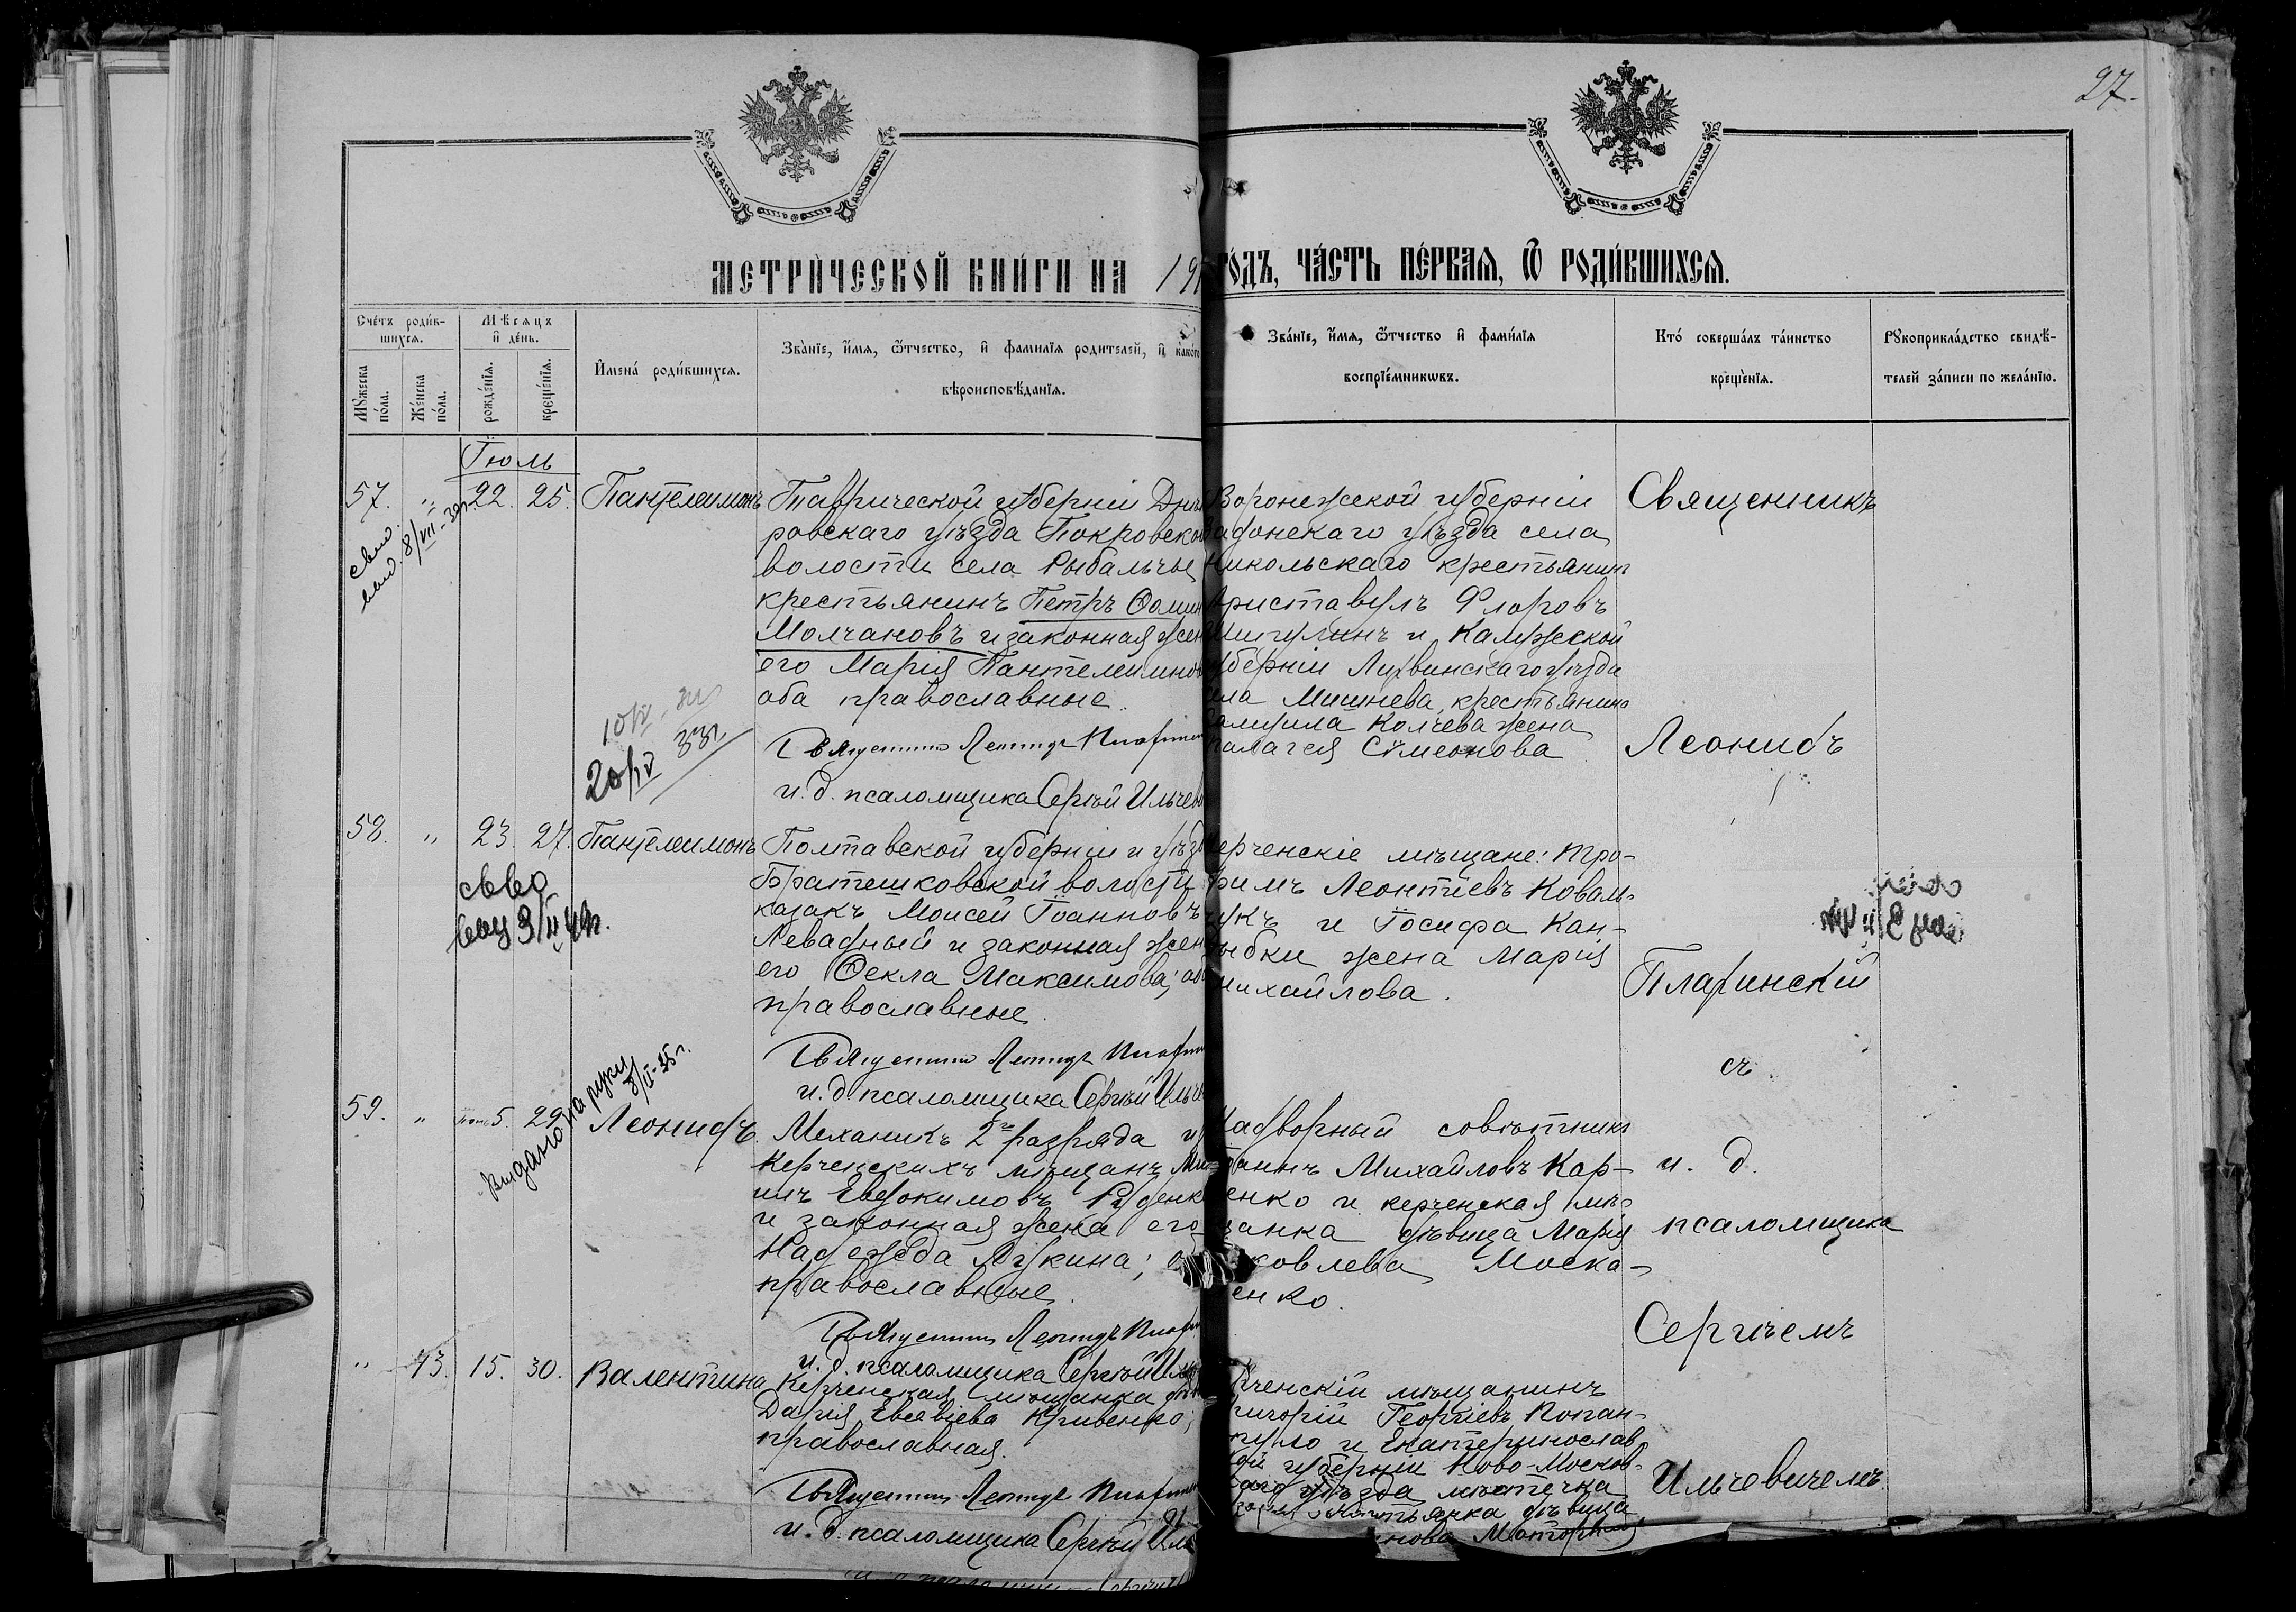 27.
МЕТРИЧЕСКОЙ КНИГИ НА 19
ГОДЪ, ЧАСТЬ ПЕРВАЯ, Ѿ РОДИВШИХСЯ.
Счетъ родив-
шихся.
Мужеска пола.
Женска пола.
Мѣсяцъ
и день.
рожденія.
крещенія.
Имена родившихся.
Званіе, имя, ѿтчество, и фамилія родителей, и какого
вѣроисповѣданія.
Званіе, имя, ѿтчество и фамилія
воспріемниковъ.
Кто совершалъ таинство
крещенія.
Рукоприкладство свидѣ-
телей записи по желанію.
Іюль
57. " 22. 25. Пантелеимонъ
свид.
выд. 8/VII-39г.
Таврической губерніи Днѣ
ровскаго уѣзда Покровско
волости села Рыбальчье
крестьянинъ Петръ Ѳомин
Молчановъ и законная жен
его Марія Пантелеимно
оба православные.
Священникъ Леонидъ
и. д. псаломщика Сергѣй Ильчев
Воронежской губерніи
Задонскаго уѣзда села
Никольскаго крестьянинъ
Ариставулъ Флоровъ
Шигулинъ и Калужской
губерніи Лихвинскаго уѣзда
села Мишнева, крестьянина
Колчева жена
Палагея Сѵмеонова
10/IV
20/IV 33г.
58. " 23. 27. Пантелеимонъ
св-во
выд 3/II 41г.
Полтавской губерніи и уѣзд
Братешковской волости
казакъ Моисей Іоанновъ
Левадный и законная жен
его Ѳекла Максимова; об
православные.
Священникъ Леонидъ
и. д. псаломщика Сергѣй Ильче
Керченскіе мѣщане: Тро-
фимъ Леонтіевъ Коваль-
чукъ и Іосифа Кан-
цыбки жена Марія
Михайлова.
59. " 5. 29. Леонидъ.
Выдано на руки
8/II-35г.
Механикъ 2го разряда и
Керченскихъ мѣщанъ Ми
илъ Евдокимовъ Руденк
и законная жена его
Надежда Лукина; о
православные.
Священникъ Леонидъ
и. д. псаломщика Сергѣй Иль
Надворный совѣтникъ
Іоаннъ Михайловъ Кар-
пенко и керченская мѣ-
щанка дѣвица Марія
Яковлева Моска-
ленко.
" 43. 15. 30. Валентина
Керченская мѣщанка дѣв
Дарія Евсевіева Кривенко;
православная.
Священникъ Леонидъ
и. д. псаломщика Сергѣй Иль
Керченскій мѣщанинъ
Григорій Георгіевъ Копан-
чуло и Екатеринослав
ской губерніи Ново-Москов-
скаго уѣзда мѣстечка
крестьянка дѣвица
Священникъ
Леонидъ
Пларинскій
съ
и. д.
псаломщика
Сергіемъ
Ильчевичемъ.